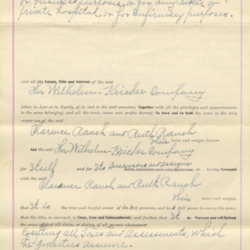 or business purposes, or for any
private hospital or for infirmary purposes.
and all the Estate, Title and Interest of the said
The Wilhelm-Kriecker Company
either in Law or in Equity of, in and to the said premises; Together with all the privileges and appurtenances
to the same belonging, and all the rents, issues and profits thereof; To have and to hold the same to the only
proper use of the said
Clarence Raush and Ruth Raush
their heirs and assigns forever
And the said
The Wilhelm-Kriecker Company
for Itself and for its successors and assigns do hereby Covenant
with the said
Clarence Raush and Ruth Raush
their
that It is the true and lawful owner of the said premises, and has full power to convey the same;
that the title, so conveyed, is Clear, Free and Unincumbered; and further, That It will Warrant and will Defend
the same against all claim, or claims, of all persons whomsoever
Excepting all taxes and assessments, which
the grantees assume.